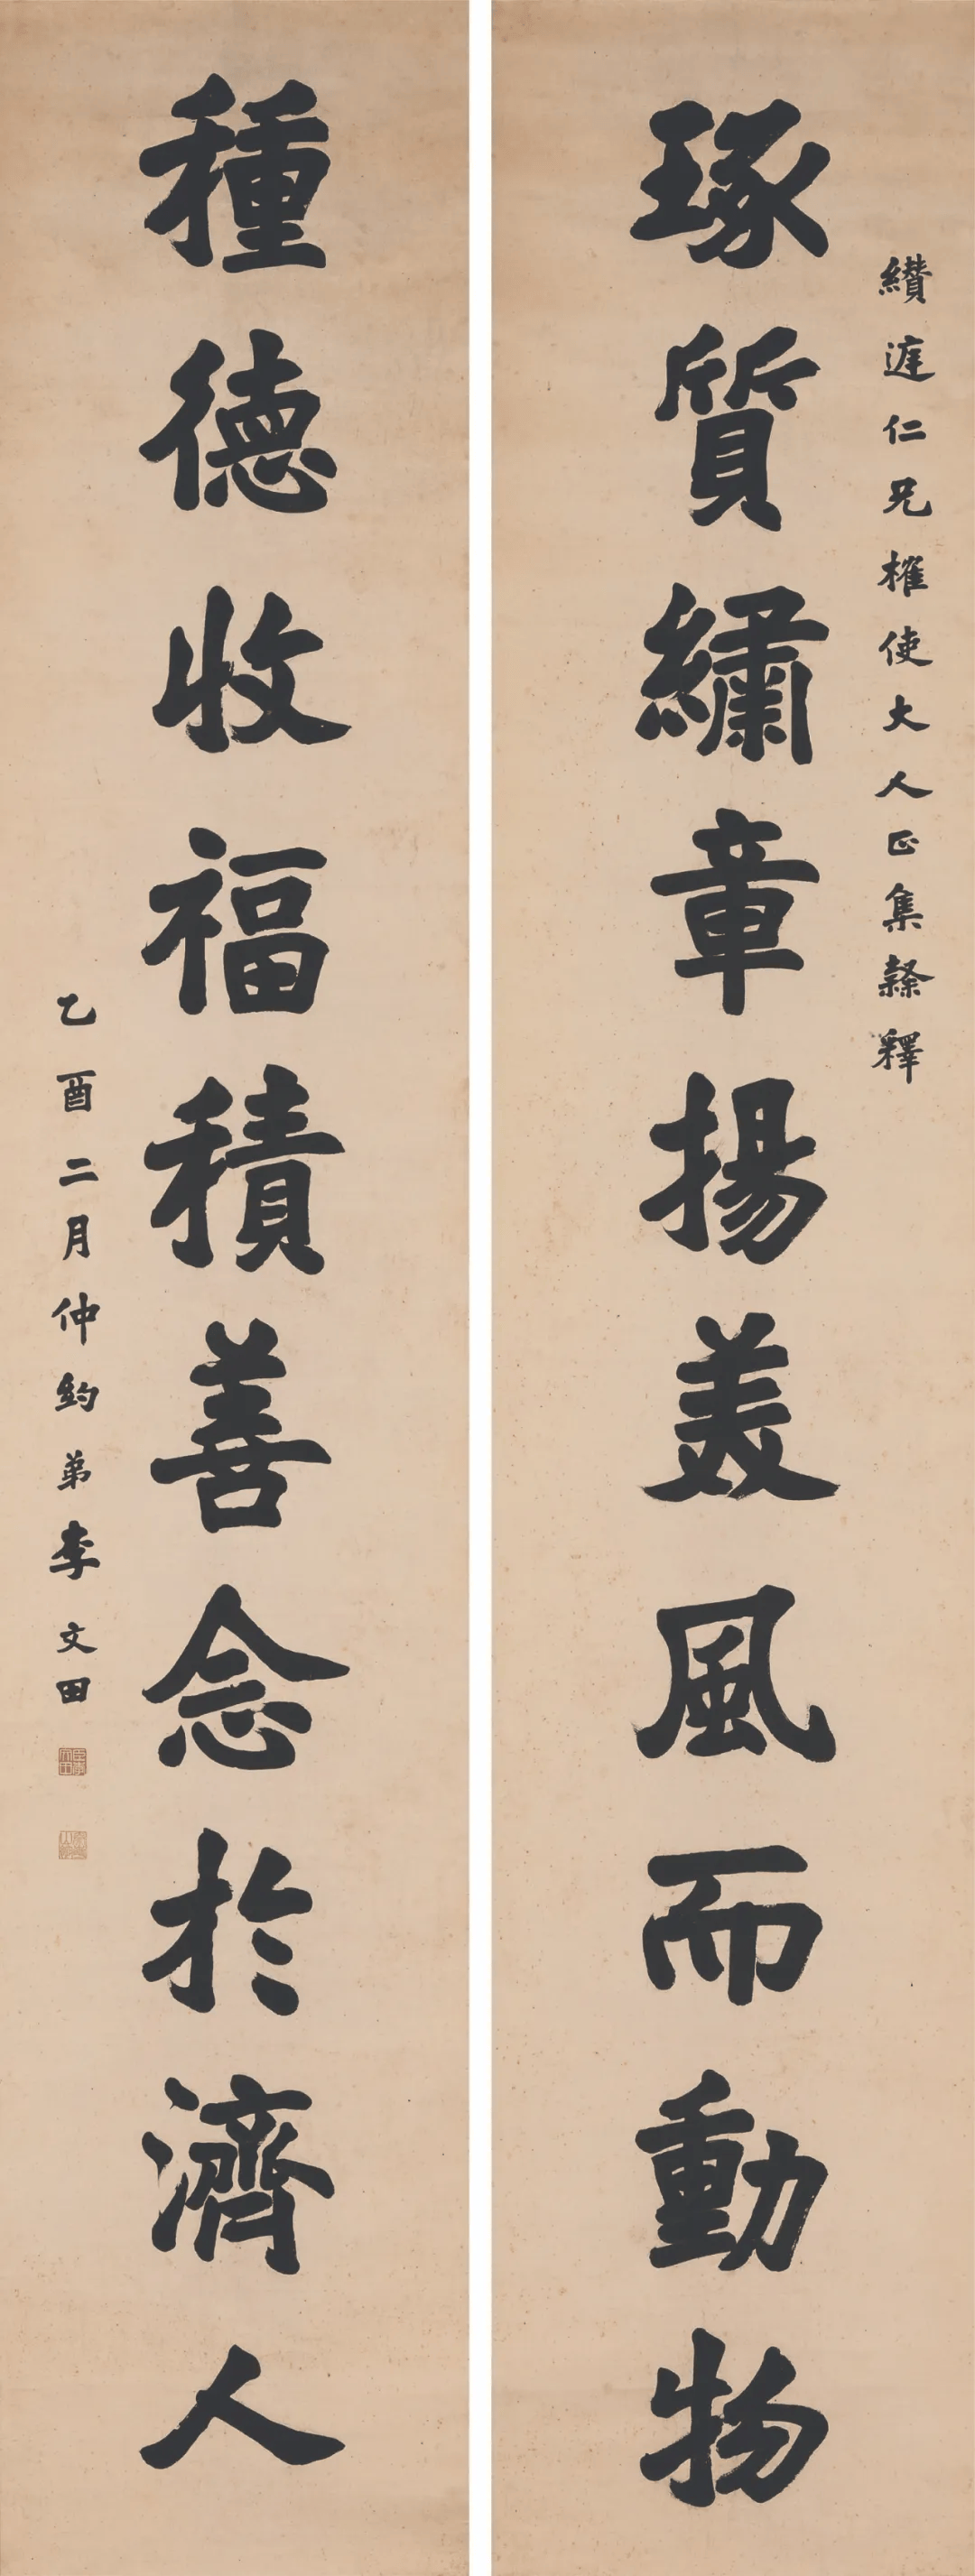 纘㢓仁兄榷使大人正集隸釋
琢質繡章揚美風而動物
種德收福積善念於濟人
乙酉二月仲約弟李文田